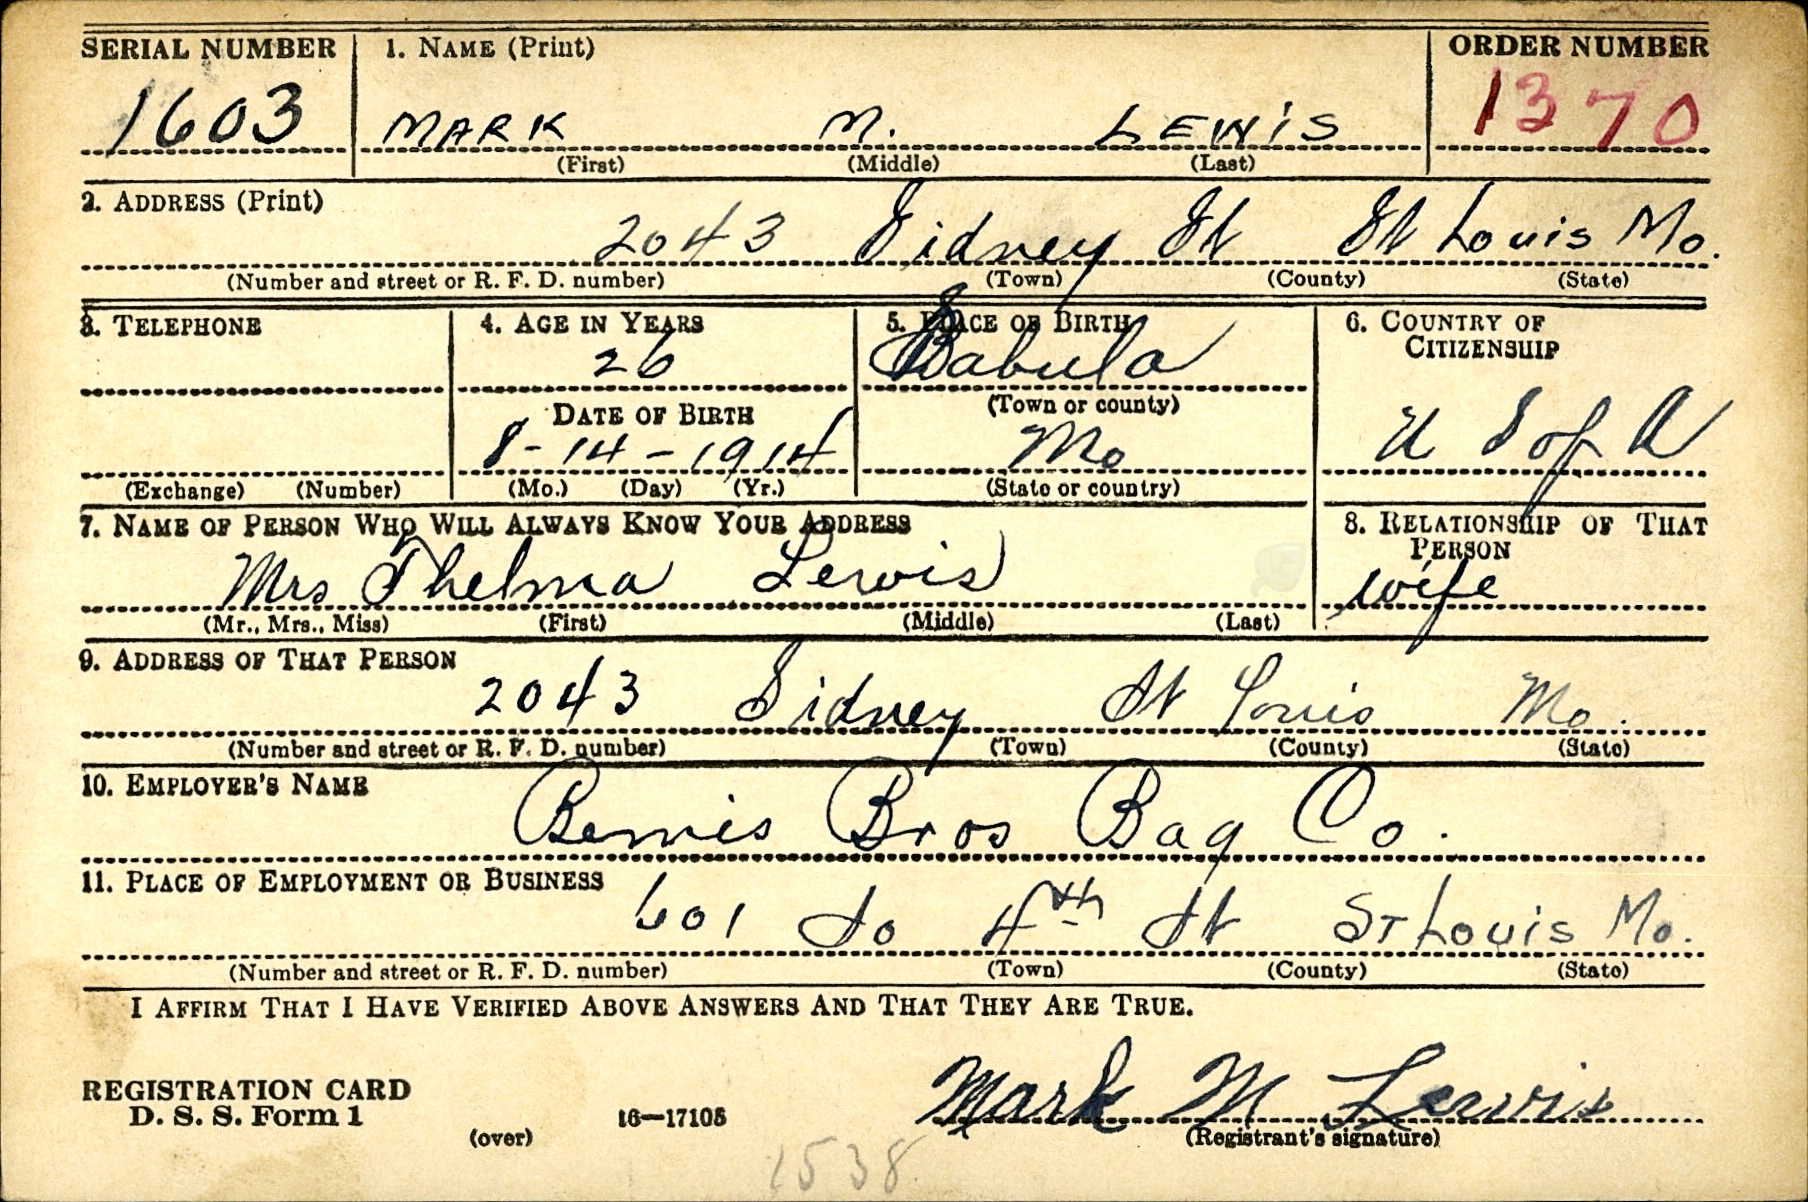 SERIAL NUMBER 1. NAME (Print) ORDER NUMBER
1603 MARK M. LEWIS 1370
(First) (Middle) (Last)
2. ADDRESS (Print)
2043 Sidney St St Louis Mo.
(Number and street or R. F. D. number) (Town) (County) (State)
3. TELEPHONE 4. AGE IN YEARS 5. PLACE OF BIRTH 6. COUNTRY OF CITIZENSHIP
26 Babula
DATE OF BIRTH (Town or county)
8-14-1914 Mo U S of A
(Exchange) (Number) (Mo.) (Day) (Yr.) (State or country)
7. NAME OF PERSON WHO WILL ALWAYS KNOW YOUR ADDRESS 8. RELATIONSHIP OF THAT PERSON
Mrs Thelma Lewis wife
(Mr., Mrs., Miss) (First) (Middle) (Last)
9. ADDRESS OF THAT PERSON
2043 Sidney St Louis Mo.
(Number and street or R. F. D. number) (Town) (County) (State)
10. EMPLOYER'S NAME
Bemis Bros Bag Co.
11. PLACE OF EMPLOYMENT OR BUSINESS
601 So 4th St ST Louis Mo.
(Number and street or R. F. D. number) (Town) (County) (State)
I AFFIRM THAT I HAVE VERIFIED ABOVE ANSWERS AND THAT THEY ARE TRUE.
REGISTRATION CARD
D. S. S. Form 1 16—17105 Mark M Lewis
(over) (Registrant's signature)
1538